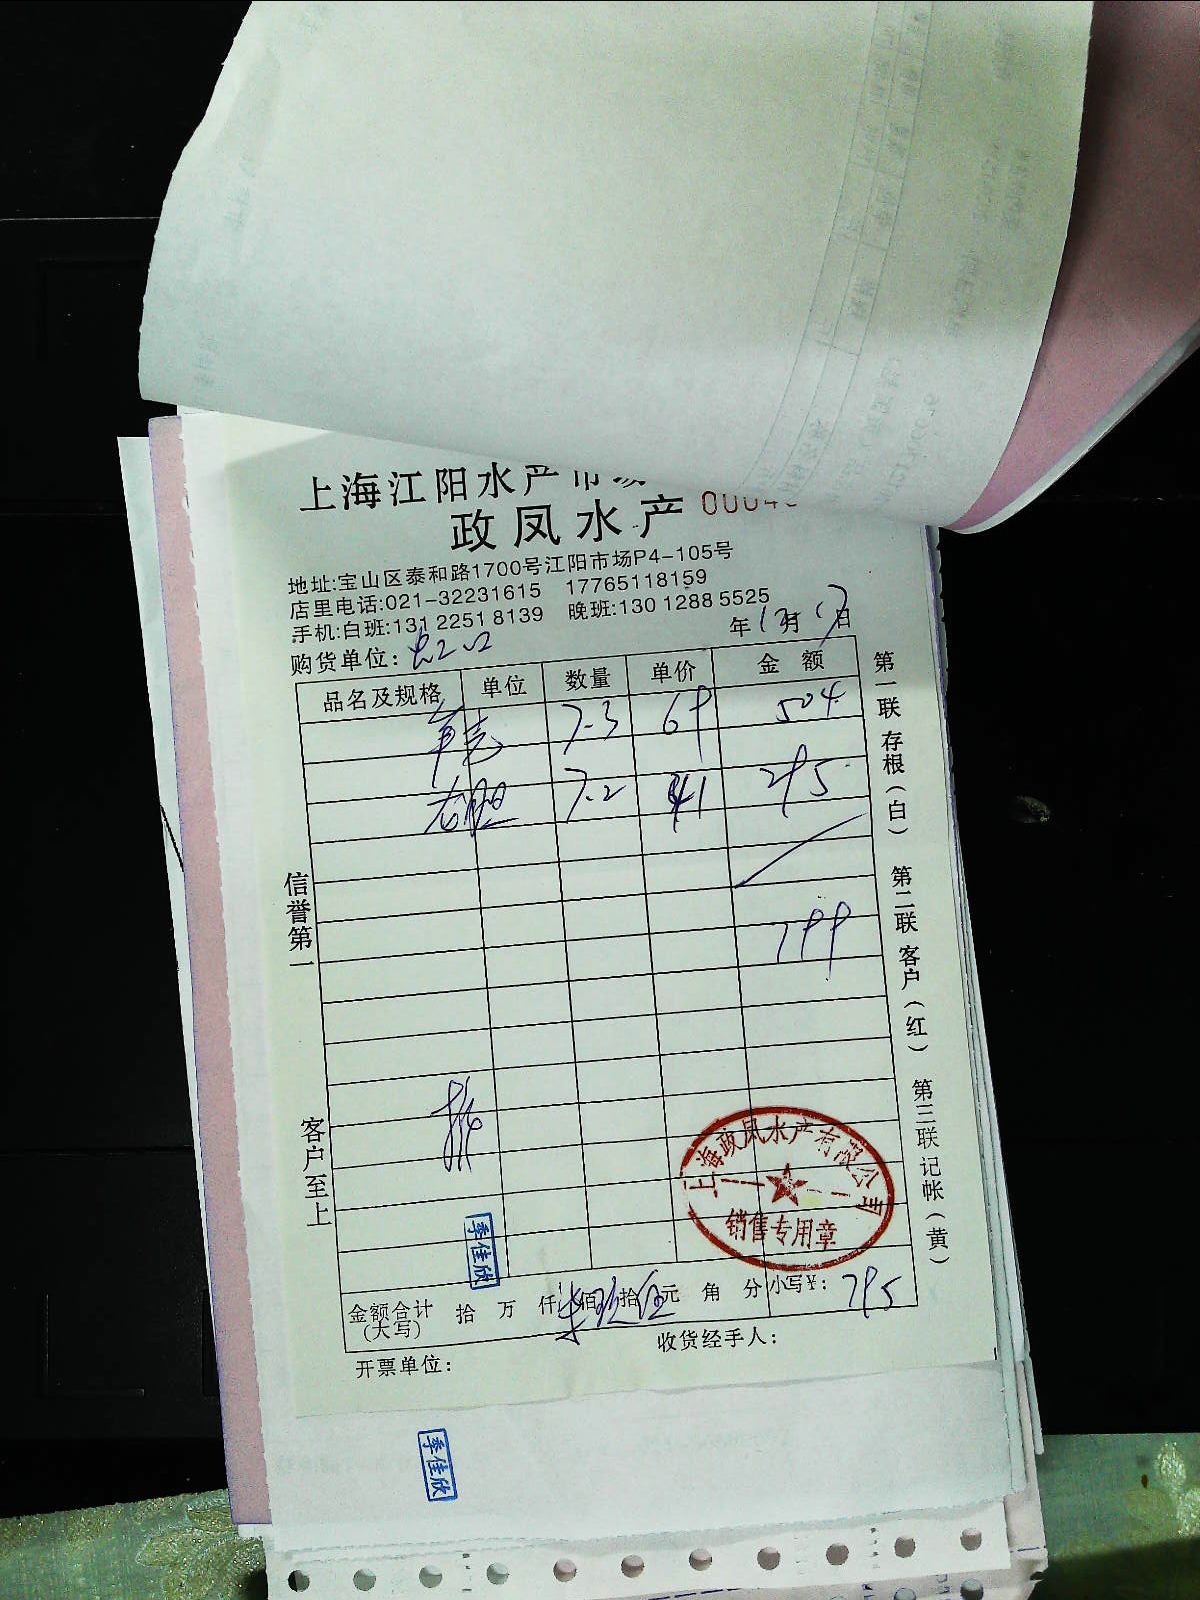 上海江阳水产市场
政凤水产 0004
地址:宝山区泰和路1700号江阳市场P4-105号
店里电话:021-32231615 17765118159
手机:白班:131 2251 8139 晚班:130 1288 5525
购货单位: 年12月17日
品名及规格 单位 数量 单价 金额
7.3 69 504
7.2 41 295
799
信誉第一
客户至上
第一联 存根(白) 第二联 客户(红) 第三联 记帐(黄)
上海政凤水产有限公司
销售专用章
季佳欣
金额合计(大写) 拾 万 仟 柒佰玖拾伍元 角 分 小写¥: 795
开票单位: 收货经手人:
季佳欣